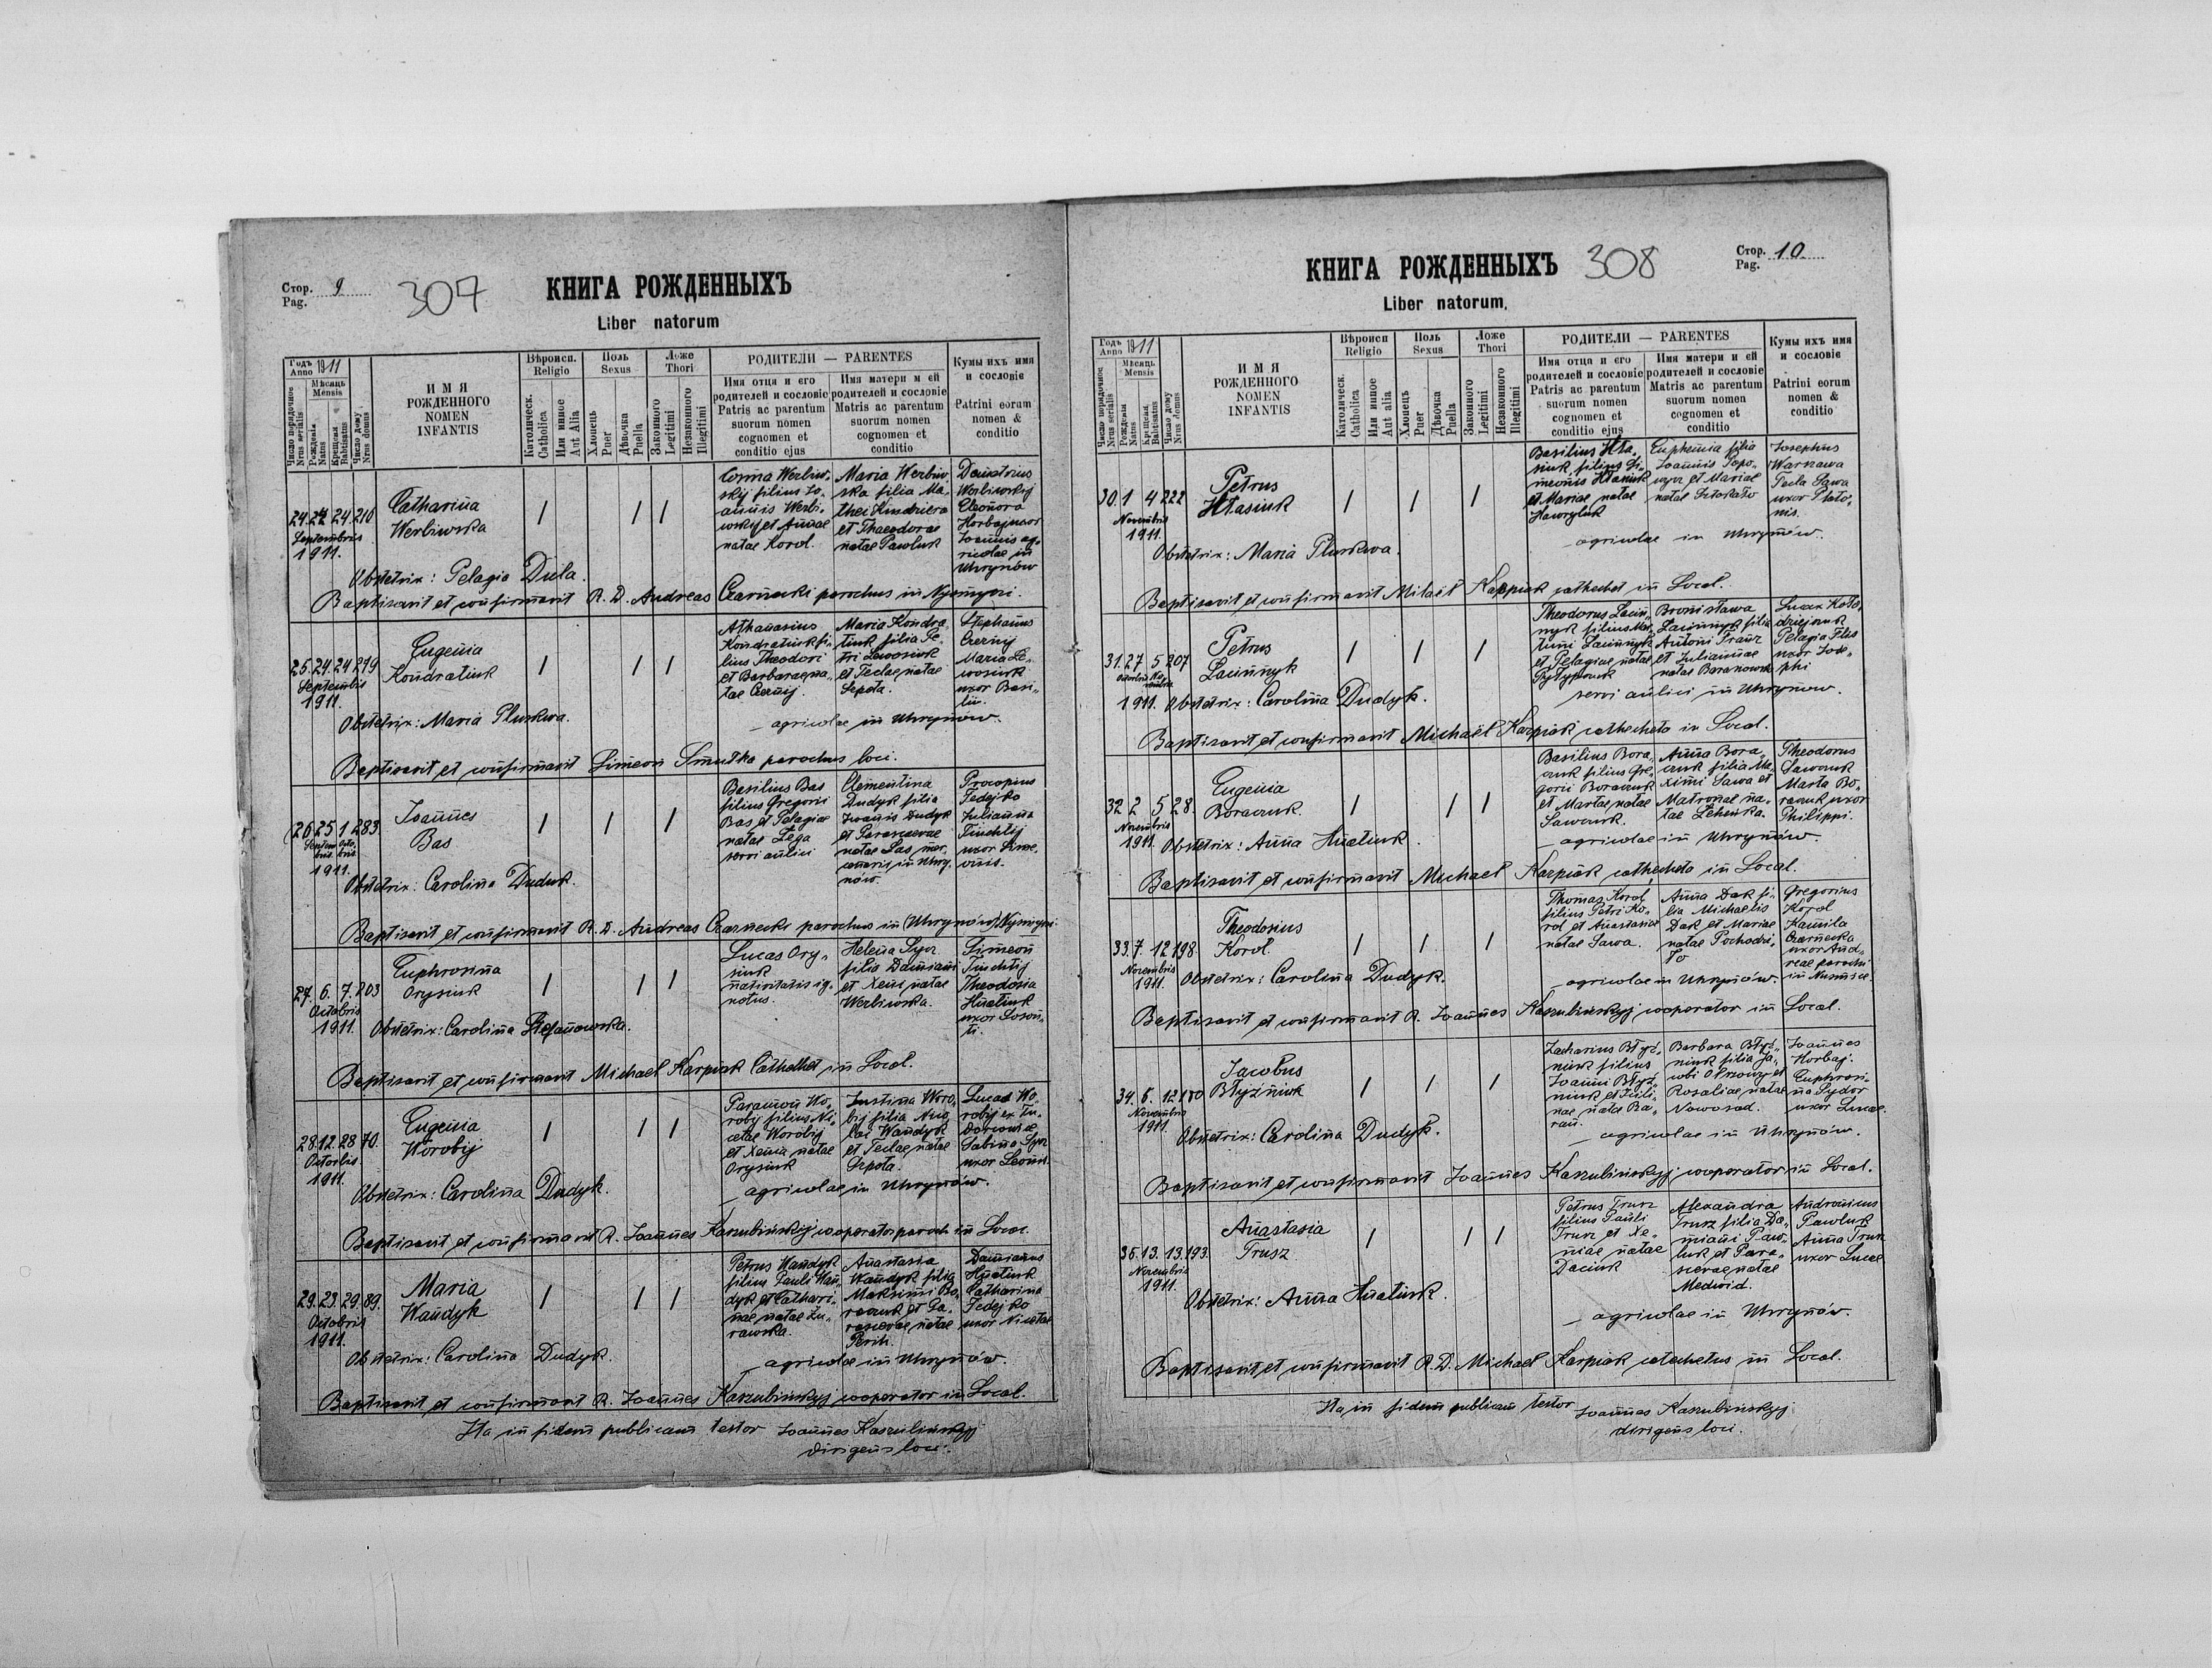 Стор. 9
Pag.
307
КНИГА РОЖДЕННЫХЪ
Liber natorum
Годъ 1911
Anno
Мѣсяць
Mensis
Число порядочное
Nrus serialis
Рожденія
Natus
Крещенія
Babtisatus
Число дому
Nrus domus
ИМЯ
РОЖДЕННОГО
NOMEN
INFANTIS
Вѣроисп.
Religio
Католическ.
Catholica
Или инное
Aut Alia
Поль
Sexus
Хлопець
Puer
Дѣвочка
Puella
Ложе
Thori
Законного
Legitimi
Незаконного
Illegitimi
РОДИТЕЛИ — PARENTES
Имя отца и его
родителей и сословіе
Patris ac parentum
suorum nomen
cognomen et
conditio ejus
Имя матери и ей
родителей и сословіе
Matris ac parentum
suorum nomen
cognomen et
conditio
Кумы ихъ имя
и сословіе
Patrini eorum
nomen &
conditio
24. 24. 24. 210
Septembris
1911.
Catharina
Werbiwska
Cosma Werbiw-
skij filius Jo-
annis Werbi-
wskij et Annae
natae Korol.
Maria Werbiw
ska filia Ma-
thei Kindriera
et Thaeodorae
natae Pawluk
Demetrius
Werbiwskij
Eleonora
Horbaj uxor
Joannis ag-
ricolae in
Uhrynów
Obstetrix: Pelagia Dula.
Baptisavit et confirmavit R. D. Andreas Czarnecki parochus in Nysmyczi.
25. 24. 24 219
Septembris
1911.
Eugenia
Kondratiuk
Athanasius
Kondratiuk fi-
lius Theodori
et Barbarae na-
tae Czernij.
Maria Kondra
tiuk filia Pe-
tri Lewosiuk
et Teclae natae
Sepota.
Stephanus
Czernij
Maria Le-
wosiuk
uxor Basi-
lii.
Obstetrix: Maria Pluskwa.
agricolae in Uhrynów.
Baptisavit et confirmavit Simeon Smulka parochus loci.
26 25 1 283
Septem Octo
bris. bris.
1911.
Joannes
Bas
Basilius Bas
filius Gregorii
Bas et Pelagiae
natae Łega
servi aulici
Clementina
Dudyk filia
Joannis Dudyk
et Parascevae
natae Las mer-
cenaris in Uhry-
nów.
Procopius
Fedejko
Julianna
Tinchtij
uxor Sime-
onis.
Obstetrix: Carolina Duduk.
Baptisavit et confirmavit R. D. Andreas Czarnecki parochus in (Uhrynów) Nysmyczi
27. 6. 7. 203
Octobris
1911.
Euphrosina
Orysiuk
Lucas Ory-
siuk
nativitatis ig-
notus.
Helena Sycz
filia Damiani
et Xeni natae
Werbiwska.
Simeon
Tinchtij
Theodosia
Hnatiuk
uxor Soson-
ti.
Obstetrix: Carolina Stefanowska.
Baptisavit et confirmavit Michael Karpiak Cathethet in Local.
28. 12. 28 70.
Octobris
1911.
Eugenia
Worobij
Paramon Wo-
robij filius Ni-
cetae Worobij
et Xenia natae
Orysiuk
Justina Woro-
bij filia Nico
lai Wandyk
et Teclae natae
Sepota.
Lucas Wo-
robij
Sabina Sycz
uxor Leonis.
Obstetrix: Carolina Dudyk.
agricolae in Uhrynów.
Baptisavit et confirmavit R. Joannes Kaszubinskij cooperator paroch in Local.
29. 23. 29. 89.
Octobris
1911.
Maria
Wandyk
Petrus Wandyk
filius Pauli Wan-
dyk et Cathari-
nae natae Zu-
rawska.
Anastasia
Wandyk filia
Maksimi Bo-
raczuk et Pa-
rascevae natae
Perih.
Damianus
Hnatiuk
Catharina
Fedejko
uxor Nicetae
Obstetrix: Carolina Dudyk.
agricolae in Uhrynów.
Baptisavit et confirmavit R. Joannes Kaszubinskyj cooperator in Local.
Ita in fidem publicam testor Joannes Kaszubinskyj
dirigens loci.
КНИГА РОЖДЕННЫХЪ
308
Стор. 10
Pag.
Liber natorum.
Годъ 1911
Anno
Мѣсяць
Mensis
Число порядочное
Nrus serialis
Рожденія
Natus
Крещенія
Babtisatus
Число дому
Nrus domus
ИМЯ
РОЖДЕННОГО
NOMEN
INFANTIS
Вѣроисп
Religio
Католическ.
Catholica
Или инное
Aut alia
Поль
Sexus
Хлопець
Puer
Дѣвочка
Puella
Ложе
Thori
Законного
Legitimi
Незаконного
Illegitimi
РОДИТЕЛИ — PARENTES
Имя отца и его
родителей и сословіе
Patris ac parentum
suorum nomen
cognomen et
conditio ejus
Имя матери и ей
родителей и сословіе
Matris ac parentum
suorum nomen
cognomen et
conditio
Кумы ихъ имя
и сословіе
Patrini eorum
nomen &
conditio
30. 1 4 222
Novembris
1911.
Petrus
Hłasiuk
Basilius Hła-
siuk filius Si-
meonis Hłasiuk
et Mariae natae
Hawryluk
Euphemia filia
Joannis Popo-
wycz et Mariae
natae
Josephus
Warszawa
Tecla Sawa
uxor Plato-
nis.
agricolae in Uhrynów.
Obstetrix: Maria Pluskwa.
Baptisavit et confirmavit Mihaël Karpiak cathechet in Local.
31. 27 5 207
Octobris Novembris
1911.
Petrus
Łacinnyk
Theodorus Łacin-
nyk filius Mar-
tini Łacinnyk
et Pelagiae natae
Pylypowuk
Bronisława
Łacinnyk filia
Antoni Franz
et Juliannae
natae Baranowska
Lucas Koło-
dziejczuk
Pelagia
uxor Jose-
phi
servi aulici in Uhrynow.
Obstetrix: Carolina Dudyk.
Baptisavit et confirmavit Michaël Karpiak cathecheta in Local.
32 2 5 28.
Novembris
1911.
Eugenia
Boraczuk.
Basilius Bora-
czuk filius Gre-
gorii Boraczuk
et Martae natae
Sawczuk.
Anna Bora-
czuk filia Ma-
ximi Sawa et
Matronae na-
tae Zehińka.
Theodorus
Sawczuk
Marta Bo-
raczuk uxor
Philippi.
agricolae in Uhrynów.
Obstetrix: Anna Hnatiuk.
Baptisavit et confirmavit Michael Karpiak cathecheta in Local.
33. 7. 12 198.
Novembris
1911.
Theodosius
Korol.
Thomas Korol
filius Petri Ko-
rol et Anastasiae
natae Sawa.
Anna Dak fi-
lia Michaelis
Dak et Mariae
natae Pochodźi-
ło
Gregorius
Korol
Kamila
Czarnecka
uxor And-
reae parochi
in Nusmice.
agricolae in Uhrynów.
Obstetrix: Carolina Dudyk.
Baptisavit et confirmavit R. Joannes Kaszubinskyj cooperator in Local.
34. 6. 12 180
Novembris
1911.
Jacobus
Błyźniuk
Zacharius Błyź-
niuk filius
Joanni Błyź-
niuk et Juli-
nae natae Ba-
ran.
Barbara Błyź-
niuk filia Ja-
cobi Olkowycz et
Rosaliae natae
Nowosad.
Joannes
Horbaj.
Euphrosi-
na Sydor
uxor Lucae.
agricolae in Uhrynów.
Obstetrix: Carolina Dudyk.
Baptisavit et confirmavit Joannes Kaszubinskyj cooperator in Local.
35. 13. 13. 193.
Novembris
1911.
Anastasia
Trusz
Petrus Trusz
filius Pauli
Trusz et Xe-
niae natae
Daciuk
Alexandra
Trusz filia Da-
miani Paw-
luk et Para-
scevae natae
Medwid.
Andronicus
Pawluk
Anna Trusz
uxor Lucae
Obstetrix: Anna Hnatiuk.
agricolae in Uhrynów.
Baptisavit et confirmavit R. D. Michael Karpiak catechetus in Local.
Ita in fidem publicam testor Joannes Kaszubinskyj
dirigens loci.